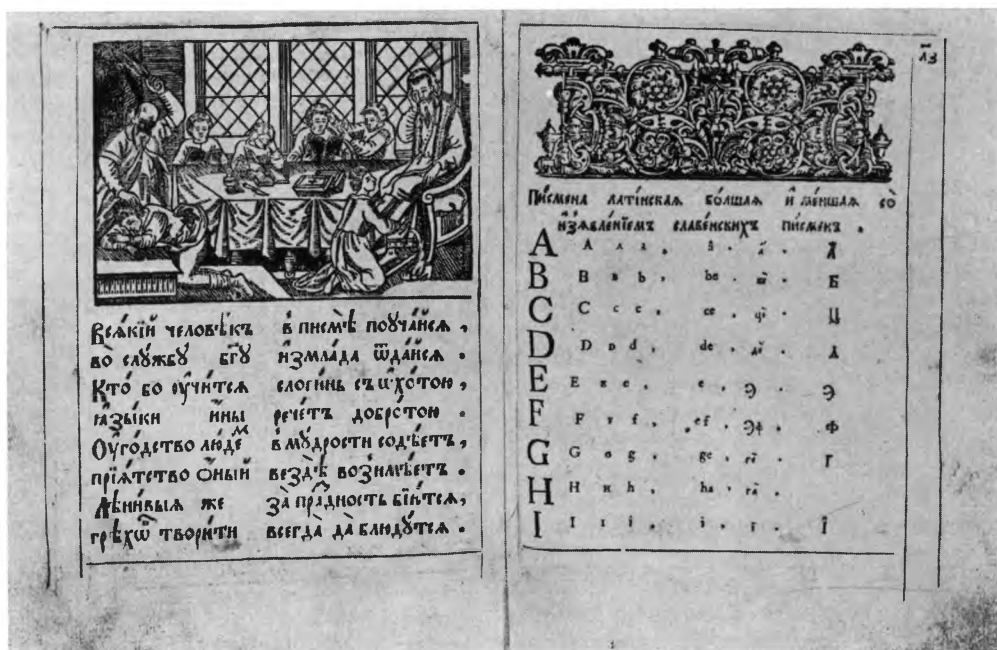 Всѧ́кїй человѣ́къ в писмѣ̀ поꙋча́йсѧ ,
во слꙋ́жбꙋ бг҃ꙋ и҆змла́да ѿда́йсѧ .
Кто́ бо ᲂу҆чи́тсѧ
ꙗ҆зы́ки и҆́ны рече́тъ добро́тою .
Оу҆го́дство люде́м в мꙋ́дрости содѣ́етъ ,
прїѧ́тство ѻ҆́ный вездѣ̀ возимѣ́етъ .
Лѣни́выѧ же за пра́здность бїю́тсѧ ,
грѣхѡ́въ твори́ти всегда̀ да блюдꙋ́тсѧ .
л҃з
Пи́смена лати́нскаѧ бо́лшаѧ и҆ ме́ншаѧ со
и҆з̾ѧвле́нїемъ славе́нскихъ пи́сменъ .
A A ᴀ a , a . а . А
B B ʙ b , be . бе . Б
C C c c , ce , це . Ц
D D ᴅ d , de , де . Д
E E ᴇ e , e , э . Э
F F ꜰ f , ef , эф . Ф
G G ɢ g , ge , ге . Г
H H ʜ h , ha , га .
I I ɪ i , i , ї . І